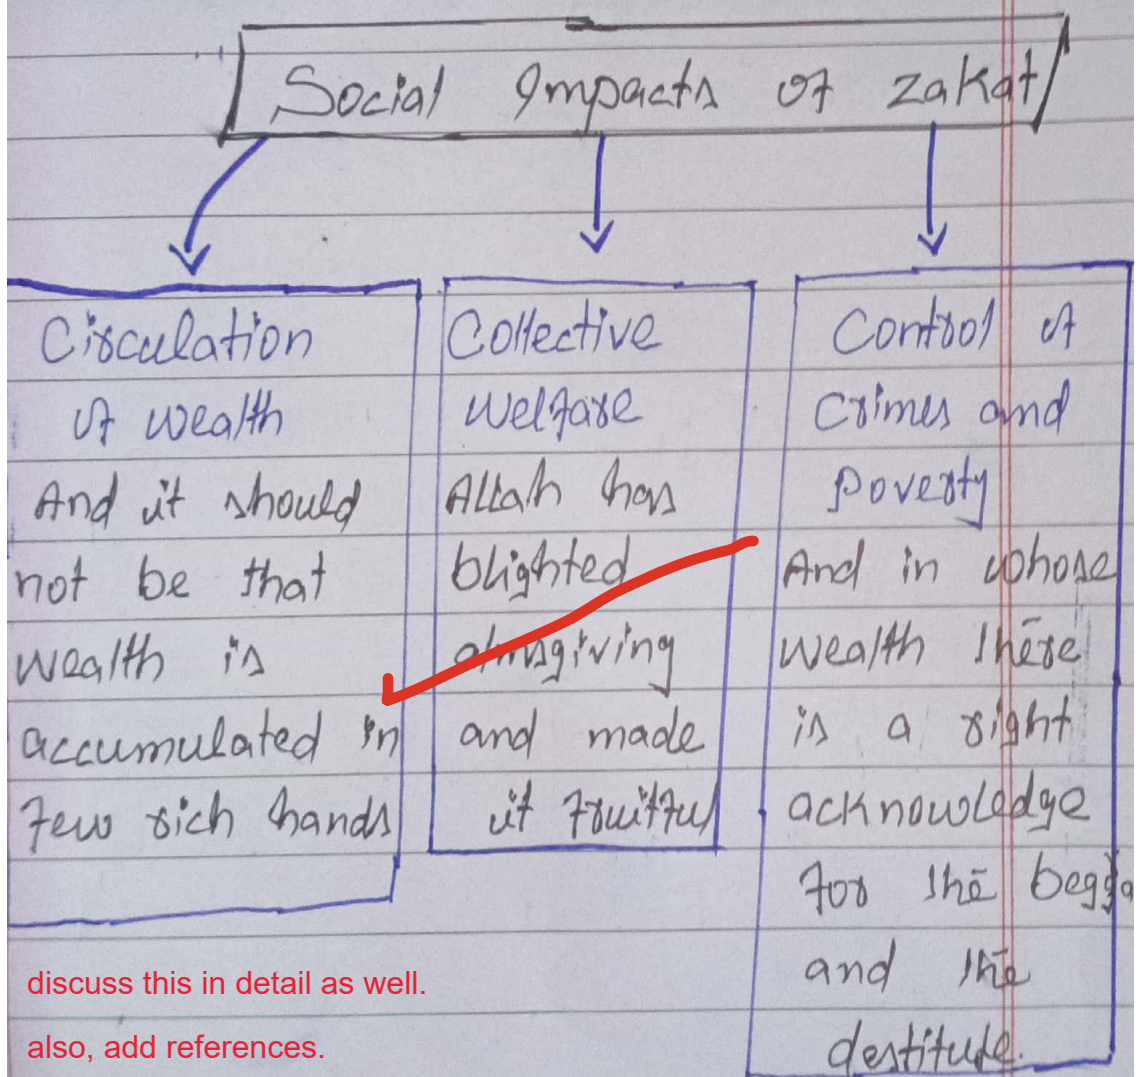 Social Impacts of zakat
Circulation
of wealth
And it should
not be that
wealth is
accumulated in
few rich hands
Collective
Welfare
Allah has
blighted
almsgiving
and made
it fruitful
Control of
Crimes and
Poverty
And in whose
wealth there
is a right
acknowledge
for the begga
and the
destitute.
discuss this in detail as well.
also, add references.